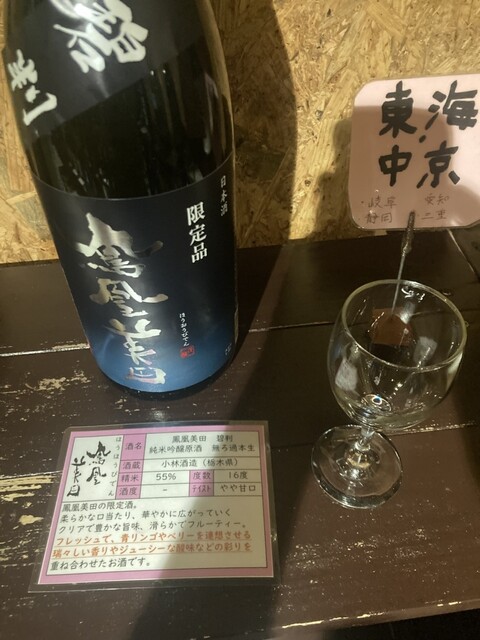 碧
判
日本酒
限定品
鳳凰美田
ほうおうびでん
東海
中京
・岐阜 愛知
静岡 三重
ほうおうびでん
鳳凰美田
酒名 鳳凰美田 碧判
純米吟醸原酒 無ろ過本生
酒蔵 小林酒造（栃木県）
精米 55% 度数 16度
酒度 - テイスト やや甘口
鳳凰美田の限定酒。
柔らかな口当たり、華やかに広がっていく
クリアで豊かな旨味、滑らかでフルーティー。
フレッシュで、青リンゴやベリーを連想させる
瑞々しい香りやジューシーな酸味などの彩りを
重ね合わせたお酒です。